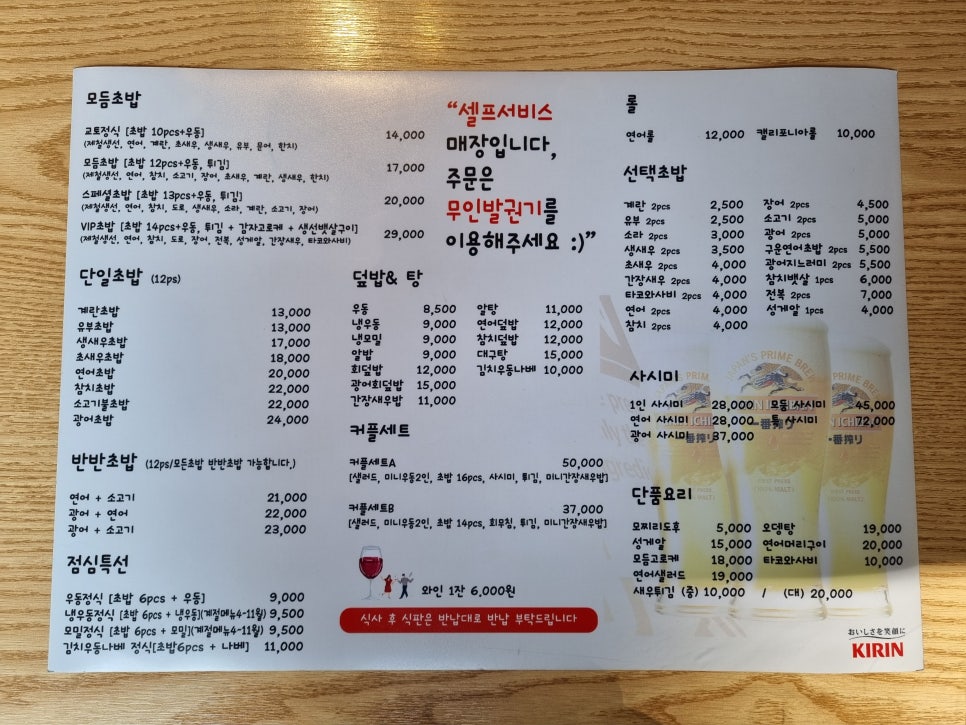 모듬초밥
교토정식 [초밥 10pcs+우동] 14,000
(제철생선, 연어, 계란, 초새우, 생새우, 유부, 문어, 한치)
모듬초밥 [초밥 12pcs+우동, 튀김] 17,000
(제철생선, 연어, 참치, 소고기, 장어, 초새우, 계란, 생새우, 한치)
스페셜초밥 [초밥 13pcs+우동, 튀김] 20,000
(제철생선, 연어, 참치, 도로, 생새우, 소라, 계란, 소고기, 장어)
VIP초밥 [초밥 14pcs+우동, 튀김 + 감자고로케 + 생선뱃살구이] 29,000
(제철생선, 연어, 참치, 도로, 장어, 전복, 성게알, 간장새우, 타코와사비)
단일초밥 (12ps)
계란초밥 13,000
유부초밥 13,000
생새우초밥 17,000
초새우초밥 18,000
연어초밥 20,000
참치초밥 22,000
소고기불초밥 22,000
광어초밥 24,000
반반초밥 (12ps/모든초밥 반반초밥 가능합니다.)
연어 + 소고기 21,000
광어 + 연어 22,000
광어 + 소고기 23,000
점심특선
우동정식 [초밥 6pcs + 우동] 9,000
냉우동정식 [초밥 6pcs + 냉우동](계절메뉴4-11월) 9,500
모밀정식 [초밥 6pcs + 모밀](계절메뉴4-11월) 9,500
김치우동나베 정식[초밥6pcs + 나베] 11,000
“셀프서비스
매장입니다,
주문은
무인발권기를
이용해주세요 :)”
덮밥& 탕
우동 8,500 알탕 11,000
냉우동 9,000 연어덮밥 12,000
냉모밀 9,000 참치덮밥 12,000
알밥 9,000 대구탕 15,000
회덮밥 12,000 김치우동나베 10,000
광어회덮밥 15,000
간장새우밥 11,000
커플세트
커플세트A 50,000
[샐러드, 미니우동2인, 초밥 16pcs, 사시미, 튀김, 미니간장새우밥]
커플세트B 37,000
[샐러드, 미니우동2인, 초밥 14pcs, 회무침, 튀김, 미니간장새우밥]
와인 1잔 6,000원
식사 후 식판은 반납대로 반납 부탁드립니다
롤
연어롤 12,000 캘리포니아롤 10,000
선택초밥
계란 2pcs 2,500 장어 2pcs 4,500
유부 2pcs 2,500 소고기 2pcs 5,000
소라 2pcs 3,000 광어 2pcs 5,000
생새우 2pcs 3,500 구운연어초밥 2pcs 5,500
초새우 2pcs 4,000 광어지느러미 2pcs 5,500
간장새우 2pcs 4,000 참치뱃살 1pcs 6,000
타코와사비 2pcs 4,000 전복 2pcs 7,000
연어 2pcs 4,000 성게알 1pcs 4,000
참치 2pcs 4,000
사시미
1인 사시미 28,000 모듬 사시미 45,000
연어 사시미 28,000 특 사시미 72,000
광어 사시미 37,000
JAPAN'S PRIME BREW
一番搾り
단품요리
모찌리도후 5,000 오뎅탕 19,000
성게알 15,000 연어머리구이 20,000
모듬고로케 18,000 타코와사비 10,000
연어샐러드 19,000
새우튀김 (중) 10,000 / (대) 20,000
おいしさを笑顔に
KIRIN